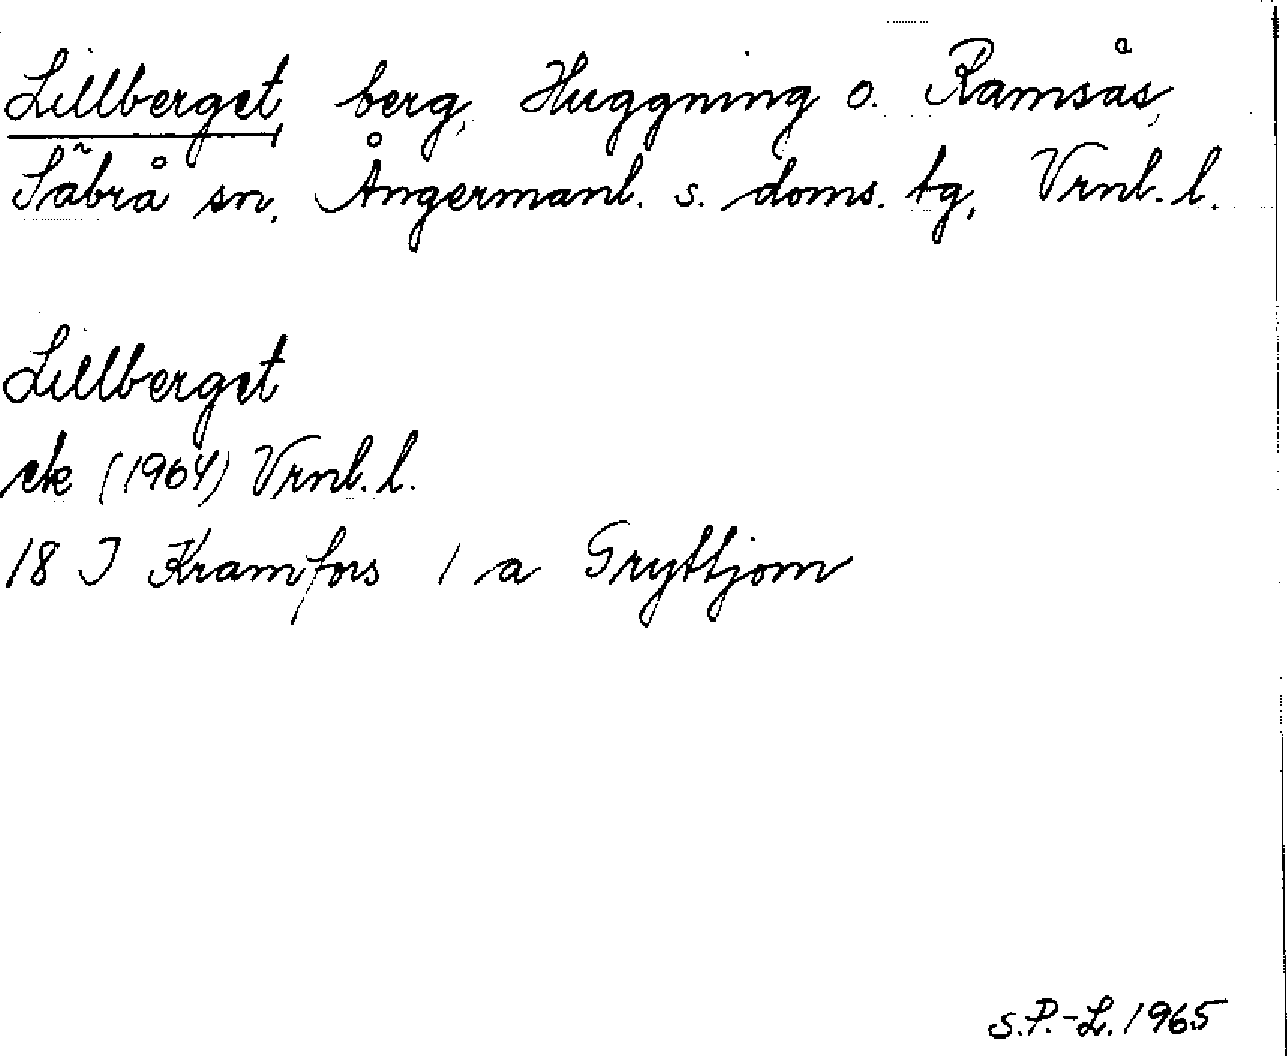 Lillberget, berg, Huggning o. Ramsås,
Säbrå sn, Ångermanl. s. doms. tg, Vrnl. l.
Lillberget
ek (1964) Vrnl. l.
18 I Kramfors 1 a Gryttjom
S.P.-L. 1965